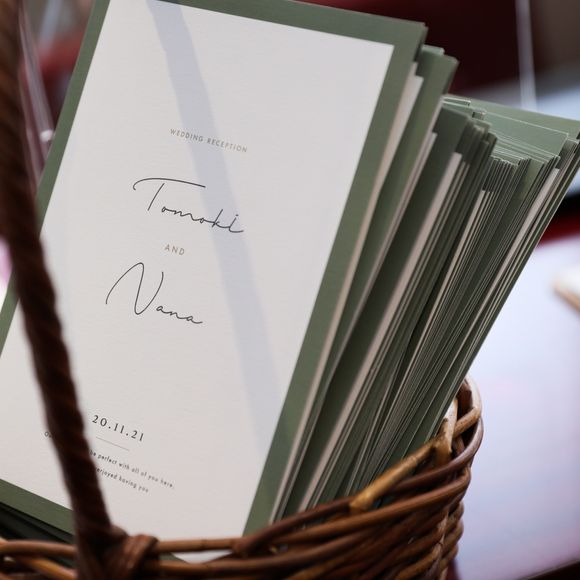 WEDDING RECEPTION
Tomoki
AND
Nana
20.11.21
be perfect with all of you here,
enjoyed having you